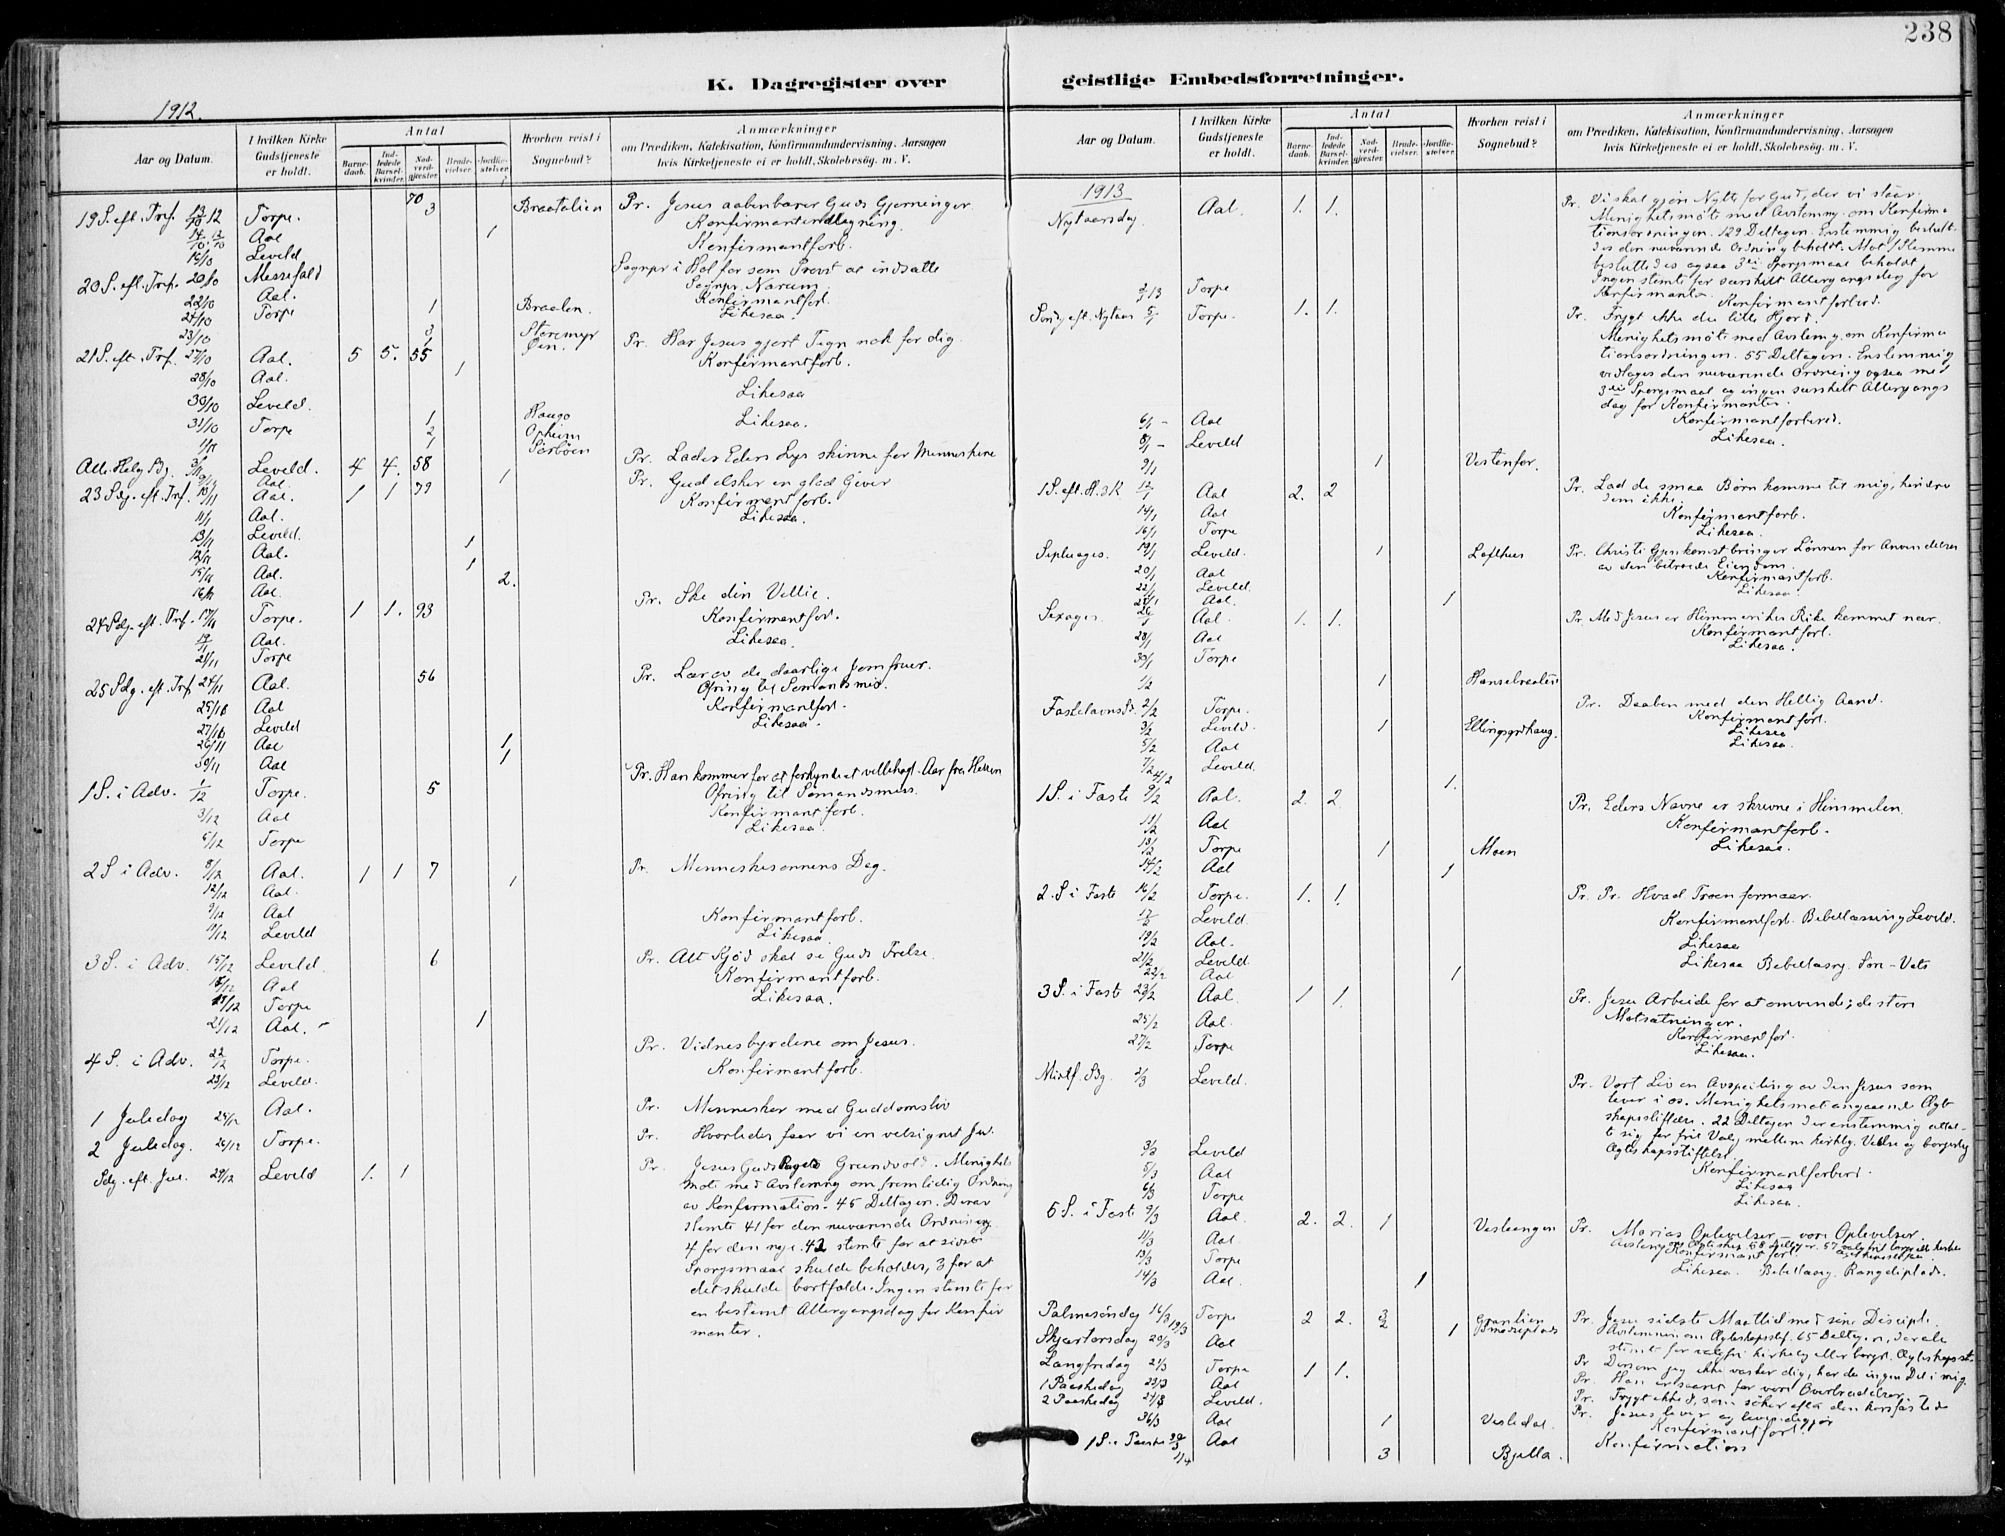 238
K. Dagregister over
geistlige Embedsforretninger.
1912.
Aar og Datum. I hvilken Kirke Gudstjeneste er holdt. Antal Barnedaab. Indledede Barselkvinder. Nadverdgjæster. Brudevielser. Jordfæstelser. Hvorhen reist i Sognebud? Anmærkninger om Prædiken, Katekisation, Konfirmandundervisning, Aarsagen hvis Kirketjeneste ei er holdt, Skolebesøg. m. V.
19 S. eft. Tref. 13/10 12 Torpe. 70 3 Braatalien Pr. Jesus aabenbarer Guds Gjerninger.
14/10 Aal 1 Konfirmantindtagning.
16/10 Leveld Konfirmantforb.
20 S. eft. Tref. 20/10 Messefald Sognpr i Hol for som Provst at indsætte
Sognpr. Narum.
22/10 Aal. 1 Braalen. Konfirmantforb.
24/10 Torpe Likesaa.
23/10 3 Storemyr
21 S. eft. Tref. 27/10 Aal. 5 5. 55 Pr. Har Jesus gjort Tegn nok for dig.
28/10 Aal. 1 Konfirmantforb.
30/10 Leveld. Likesaa
31/10 Torpe 1 Haugo Likesaa.
2 Opheim
1/11 1 Sørbøen
All. Helg Sdg. 3/11 Leveld. 4 4. 58 Pr. Lader Eders Lys skinne for Menneskene
Aal. 1
23 Sdg. eft. Tref. 10/11 Aal. 1 1 79 Pr. Gud elsker en glad Giver
11/11 Aal. Konfirmantforb.
13/11 Leveld. Likesaa.
Aal. 1
15/11 Aal. 1
16/11 Aal. 2.
24 Sdg. eft. Tref. 17/11 Torpe. 1 1. 93 Pr. Ske din Villie.
Aal. Konfirmantfor.
21/11 Torpe Likesaa
25 Sdg. eft. Tref. 24/11 Aal. 56 Pr. Lær av de daarlige Jomfruer.
Ofring til Sømandsmis.
Aal Konfirmantfor.
Leveld Likesaa.
26/11 Aal 1
30/11 Aal 1
1 S. i Adv. 1/12 Torpe. 5 Pr. Han kommer for at forkynde et velbehagl. Aar fra Herren
Ofring til Sømandsmis.
3/12 Aal Konfirmantforb.
5/12 Torpe Likesaa.
2 S i Adv. 8/12 Aal. 1 1 7 Pr. Menneskesønnens Dag.
12/12 Aal. 1
9/12 Aal Konfirmantforb.
11/12 Leveld Likesaa
3 S. i Adv. 15/12 Leveld. 6 Pr. Alt Kjød skal se Guds Frelse.
Aal Konfirmantforb.
Torpe Likesaa.
21/12 Aal. 1
4 S. i Adv. 22/12 Torpe. Pr. Vidnesbyrdene om Jesus.
23/12 Leveld. Konfirmantforb.
1 Juledag 25/12 Aal. Pr. Mennesker med Guddomsliv
2 Juledag. 26/12 Torpe. Pr. Hvorledes faar vi en velsignet Jul.
Sdg. eft. Jul. 29/12 Leveld 1. 1 Pr. Jesus Guds Grundvold. Menighets
møte med Avstemning om fremtidig Ordning
av Konfirmation. 45 Deltagere. Derav
stemte 41 for den nuværende Ordning
4 for den nye. 42 stemte for at sidste
Spørgsmaal skulde beholdes, 3 for at
det skulde bortfalde. Ingen stemte for
en bestemt Altergangsdag for Konfir
manter.
Aar og Datum. I hvilken Kirke Gudstjeneste er holdt. Antal Barnedaab. Indledede Barselkvinder. Nadverdgjæster. Brudevielser. Jordfæstelser. Hvorhen reist i Sognebud? Anmærkninger om Prædiken, Katekisation, Konfirmandundervisning, Aarsagen hvis Kirketjeneste ei er holdt, Skolebesøg. m. V.
1913
Nytaarsdag Aal. 1. 1. Pr. Vi skal gjøre Nytte for Gud, der vi staar.
Menighetsmøte med Avstemng. om Konfirma
tionsordningen. 129 Deltagere. Enstemmig beslutt.
des den nuværende Ordning beholdt. Mot 1 Stemme
besluttedes ogsaa 3die Spørgsmaal beholdt.
Ingen stemte for særskilt Altergangsdag for
Konfirmanter.
2/1 13 Torpe Konfirmantforbed.
Sønd. eft. Nytaar 5/1 Torpe. 1. 1. Pr. Frygt ikke du lille Hjord.
Menighetsmøte med Avstemg. om Konfirma
tionsordningen. 55 Deltagere. Enstemmig
vedtoges den nuværende Ordning ogsaa med
3die Spørgsmaal og ingen særskilt Altergangs
dag for Konfirmanter.
6/1 - Aal Konfirmantforbered.
8/1 - Leveld Likesaa.
9/1 1 Vestenfor.
1 S. eft. H. 3 K 12/1 Aal 2. 2 Pr. Lad de smaa Børn komme til mig, hindre
dem ikke.
14/1 Aal Konfirmantforb.
16/1 Torpe Likesaa.
Septuages. 19/1 Leveld. 1 Lofthus Pr. Christi Gjenkomst bringer Lønnen for Anvendelsen
av den betroede Eiendom.
20/1 Aal Konfirmantforb.
22/1 Leveld. Likesaa
Aal. 1
Sexages. 26/1 Aal. 1. 1. Pr. Med Jesus er Himmeriket Rike kommet nær.
28/1 Aal Konfirmantforb.
30/1 Torpe Likesaa.
1/2 1
Fastelavnsdg. 2/2 Torpe. Pr. Daaben med den Hellig Aand.
3/2 Leveld. 1 Konfirmantforb.
5/2 Aal Likesaa
7/2 Leveld. Likesaa.
4/2 1.
1 S. i Faste 9/2 Aal. 2. 2. Pr. Eders Navne er skrevne i Himmelen.
11/2 Aal Konfirmantforb.
13/2 Torpe 1 Moen Likesaa.
14/2 Aal 1
2. S i Faste 16/2 Torpe. 1. 1. Pr. Pr. Hvad Troen formaar.
17/2 Leveld. Konfirmantforb. Bibellæsning Leveld.
19/2 Aal. Likesaa
21/2 Leveld. Likesaa Bibellæsng. Sør-Vats
22/2 Aal 1
3 S. i Faste 23/2 Aal. 1 1. Pr. Jesu Arbeide for at omvende; de store
Motsætninger.
25/2 Aal. Konfirmantfor.
27/2 Torpe Likesaa.
Midtf. Sdg. 2/3 Leveld. Pr. Vort Liv en Avspeiling av den Jesus som
lever i os. Menighetsmøt angaaende Ægte
skapsstiftelse. 22 Deltagere der enstemmig uttal-
te sig for frit Valg mellem kirkelig Vielse og borgerlig
Ægteskapsstiftelse.
3/3 Leveld Konfirmantforbered.
5/3 Aal Likesaa
6/3 Torpe Likesaa.
5 S. i Faste 9/3 Aal. 2. 2. 1 Vesleengen Pr. Marias Oplevelser - vore Oplevelser.
11/3 Aal Konfirmantforb.
13/3 Torpe Likesaa. Bibellæsng.
14/3 Aal. 1
Palmesøndag 16/3 Torpe 2 2. Grønlien Pr. Jesu sidste Maaltid med sine Disciple.
19/3 1 Avstemnen. om Ægteskapsstif. 65 Deltagere, der alle
Skjærtorsdag 20/3 Aal stemte for valgfri kirkelig eller borgl. Ægteskapsst.
Langfredag 21/3 Torpe 1 1. Pr. Dersom jeg ikke vasker dig, har du ingen Del i mig.
1 Paaskedag 23/3 Aal Pr. Han er saaret for vore Overtrædelser.
2 Paaskedag 24/3 Leveld. Pr. Frygt ikke I, som søker efter den korsfæstede
Pr. Jesus lever og
26/3 Aal 1 Vesledal. Konfirmantforb.
1 S. e Paaske 30/3 Aal Konfirmation
1/4 3 Bjella.